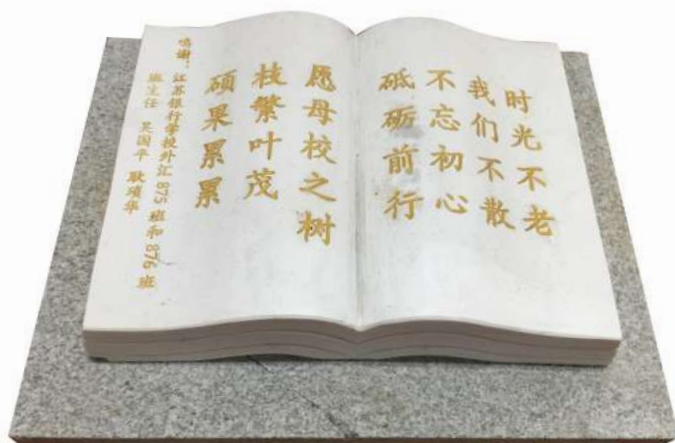 时光不老
我们不散
不忘初心
砥砺前行
愿母校之树
枝繁叶茂
硕果累累
鸣谢：
江苏银行学校外汇875班和876班
班主任 吴国平 耿靖华